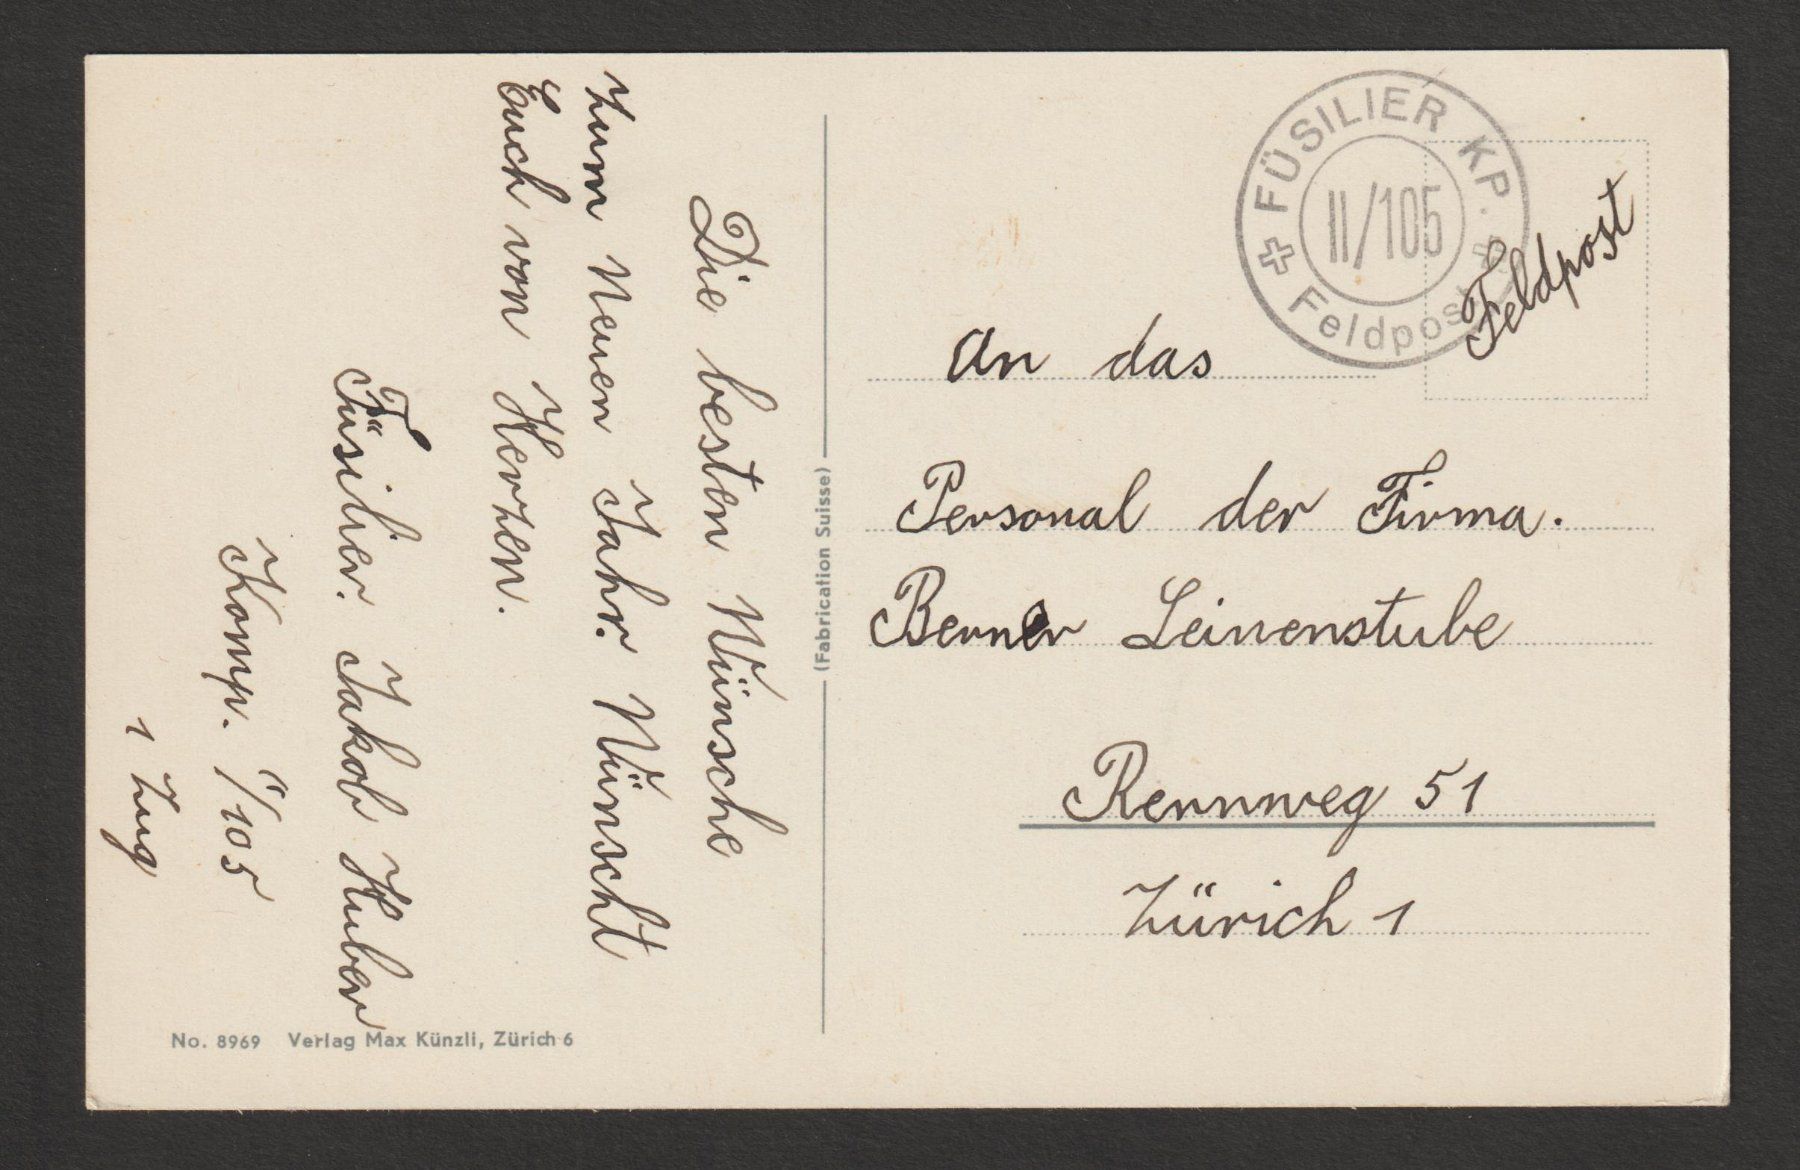 Die besten Wünsche
zum Neuen Jahr. Wünscht
Euch von Herzen.
Füsilier. Jakob Huber
Komp. II/105
1 Zug
No. 8969 Verlag Max Künzli, Zürich 6
(Fabrication Suisse)
FÜSILIER KP.
II/105
Feldpost
Feldpost
An das
Personal der Firma.
Berner Leinenstube
Rennweg 51
Zürich 1